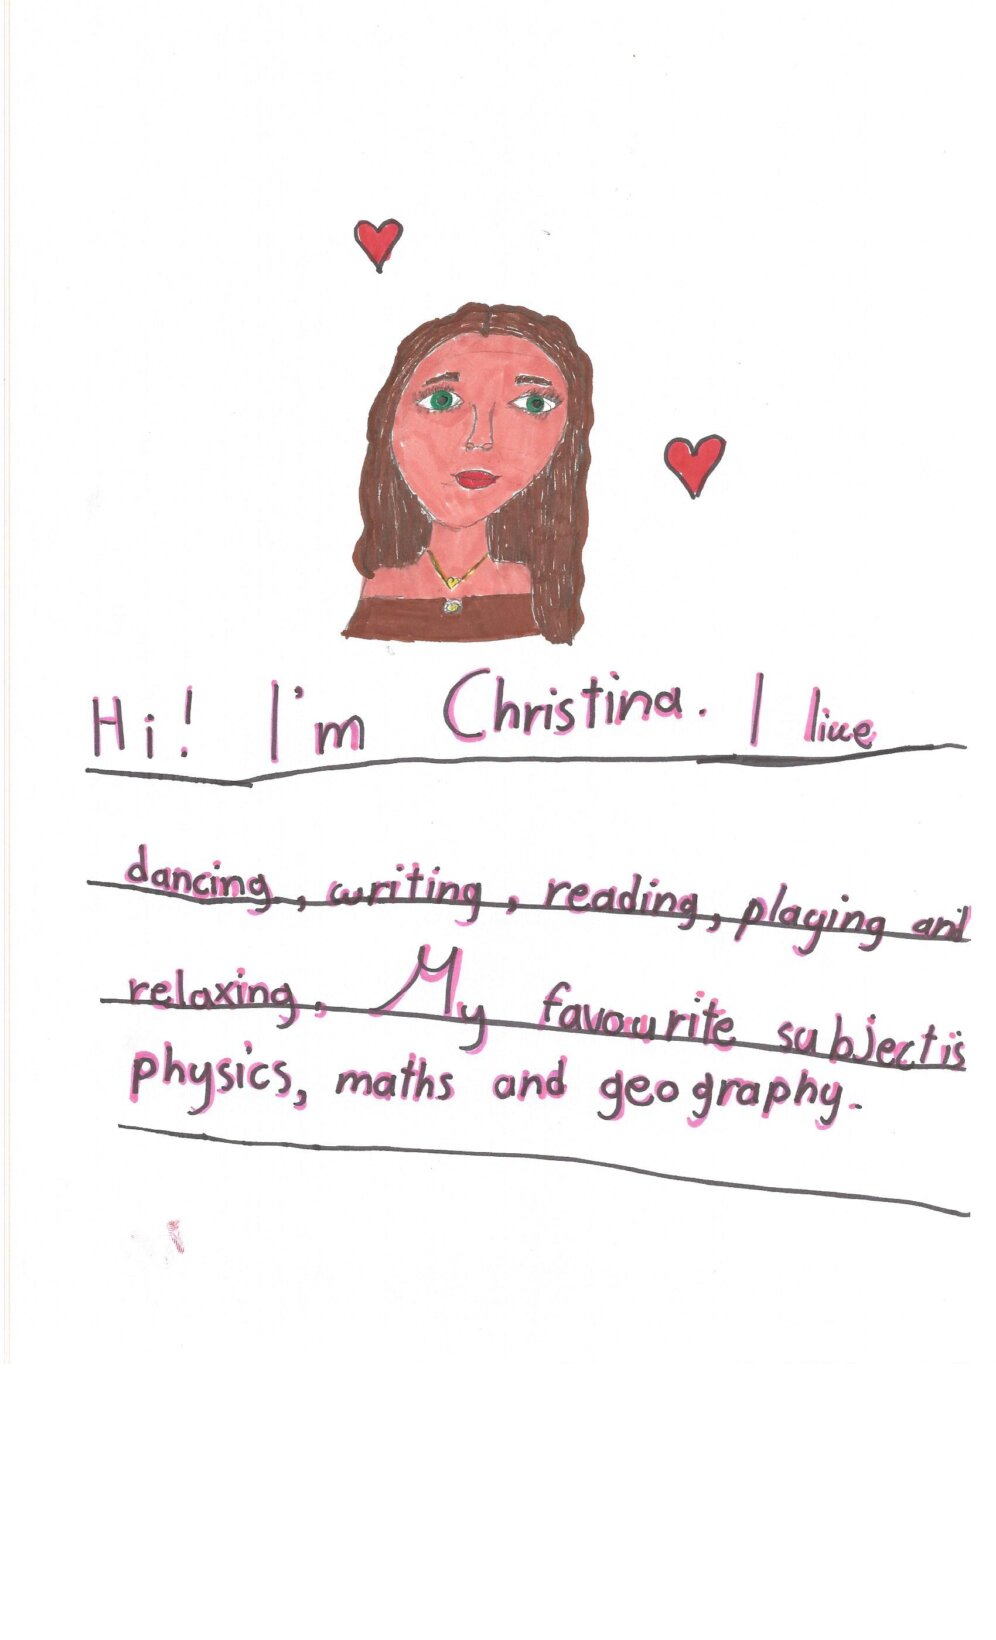 Hi! I'm Christina. I like
dancing, writing, reading, playing and
relaxing, My favourite subject is
physics, maths and geography.